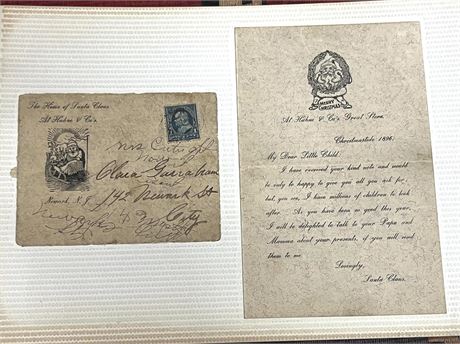 The House of Santa Claus
At Hahne & Co's.
Newark, N.J.
Mrs
Clara
142 Newark St
City
MERRY
CHRISTMAS
At Hahne & Co's Great Store.
Christmastide 1896.
My Dear Little Child:
I have received your kind note and would
be only to happy to give you all you ask for
but, you see, I have millions of children to look
after. As you have been so good this year,
I will be delighted to talk to your Papa and
Momma about your presents, if you will send
them to me
Lovingly,
Santa Claus.